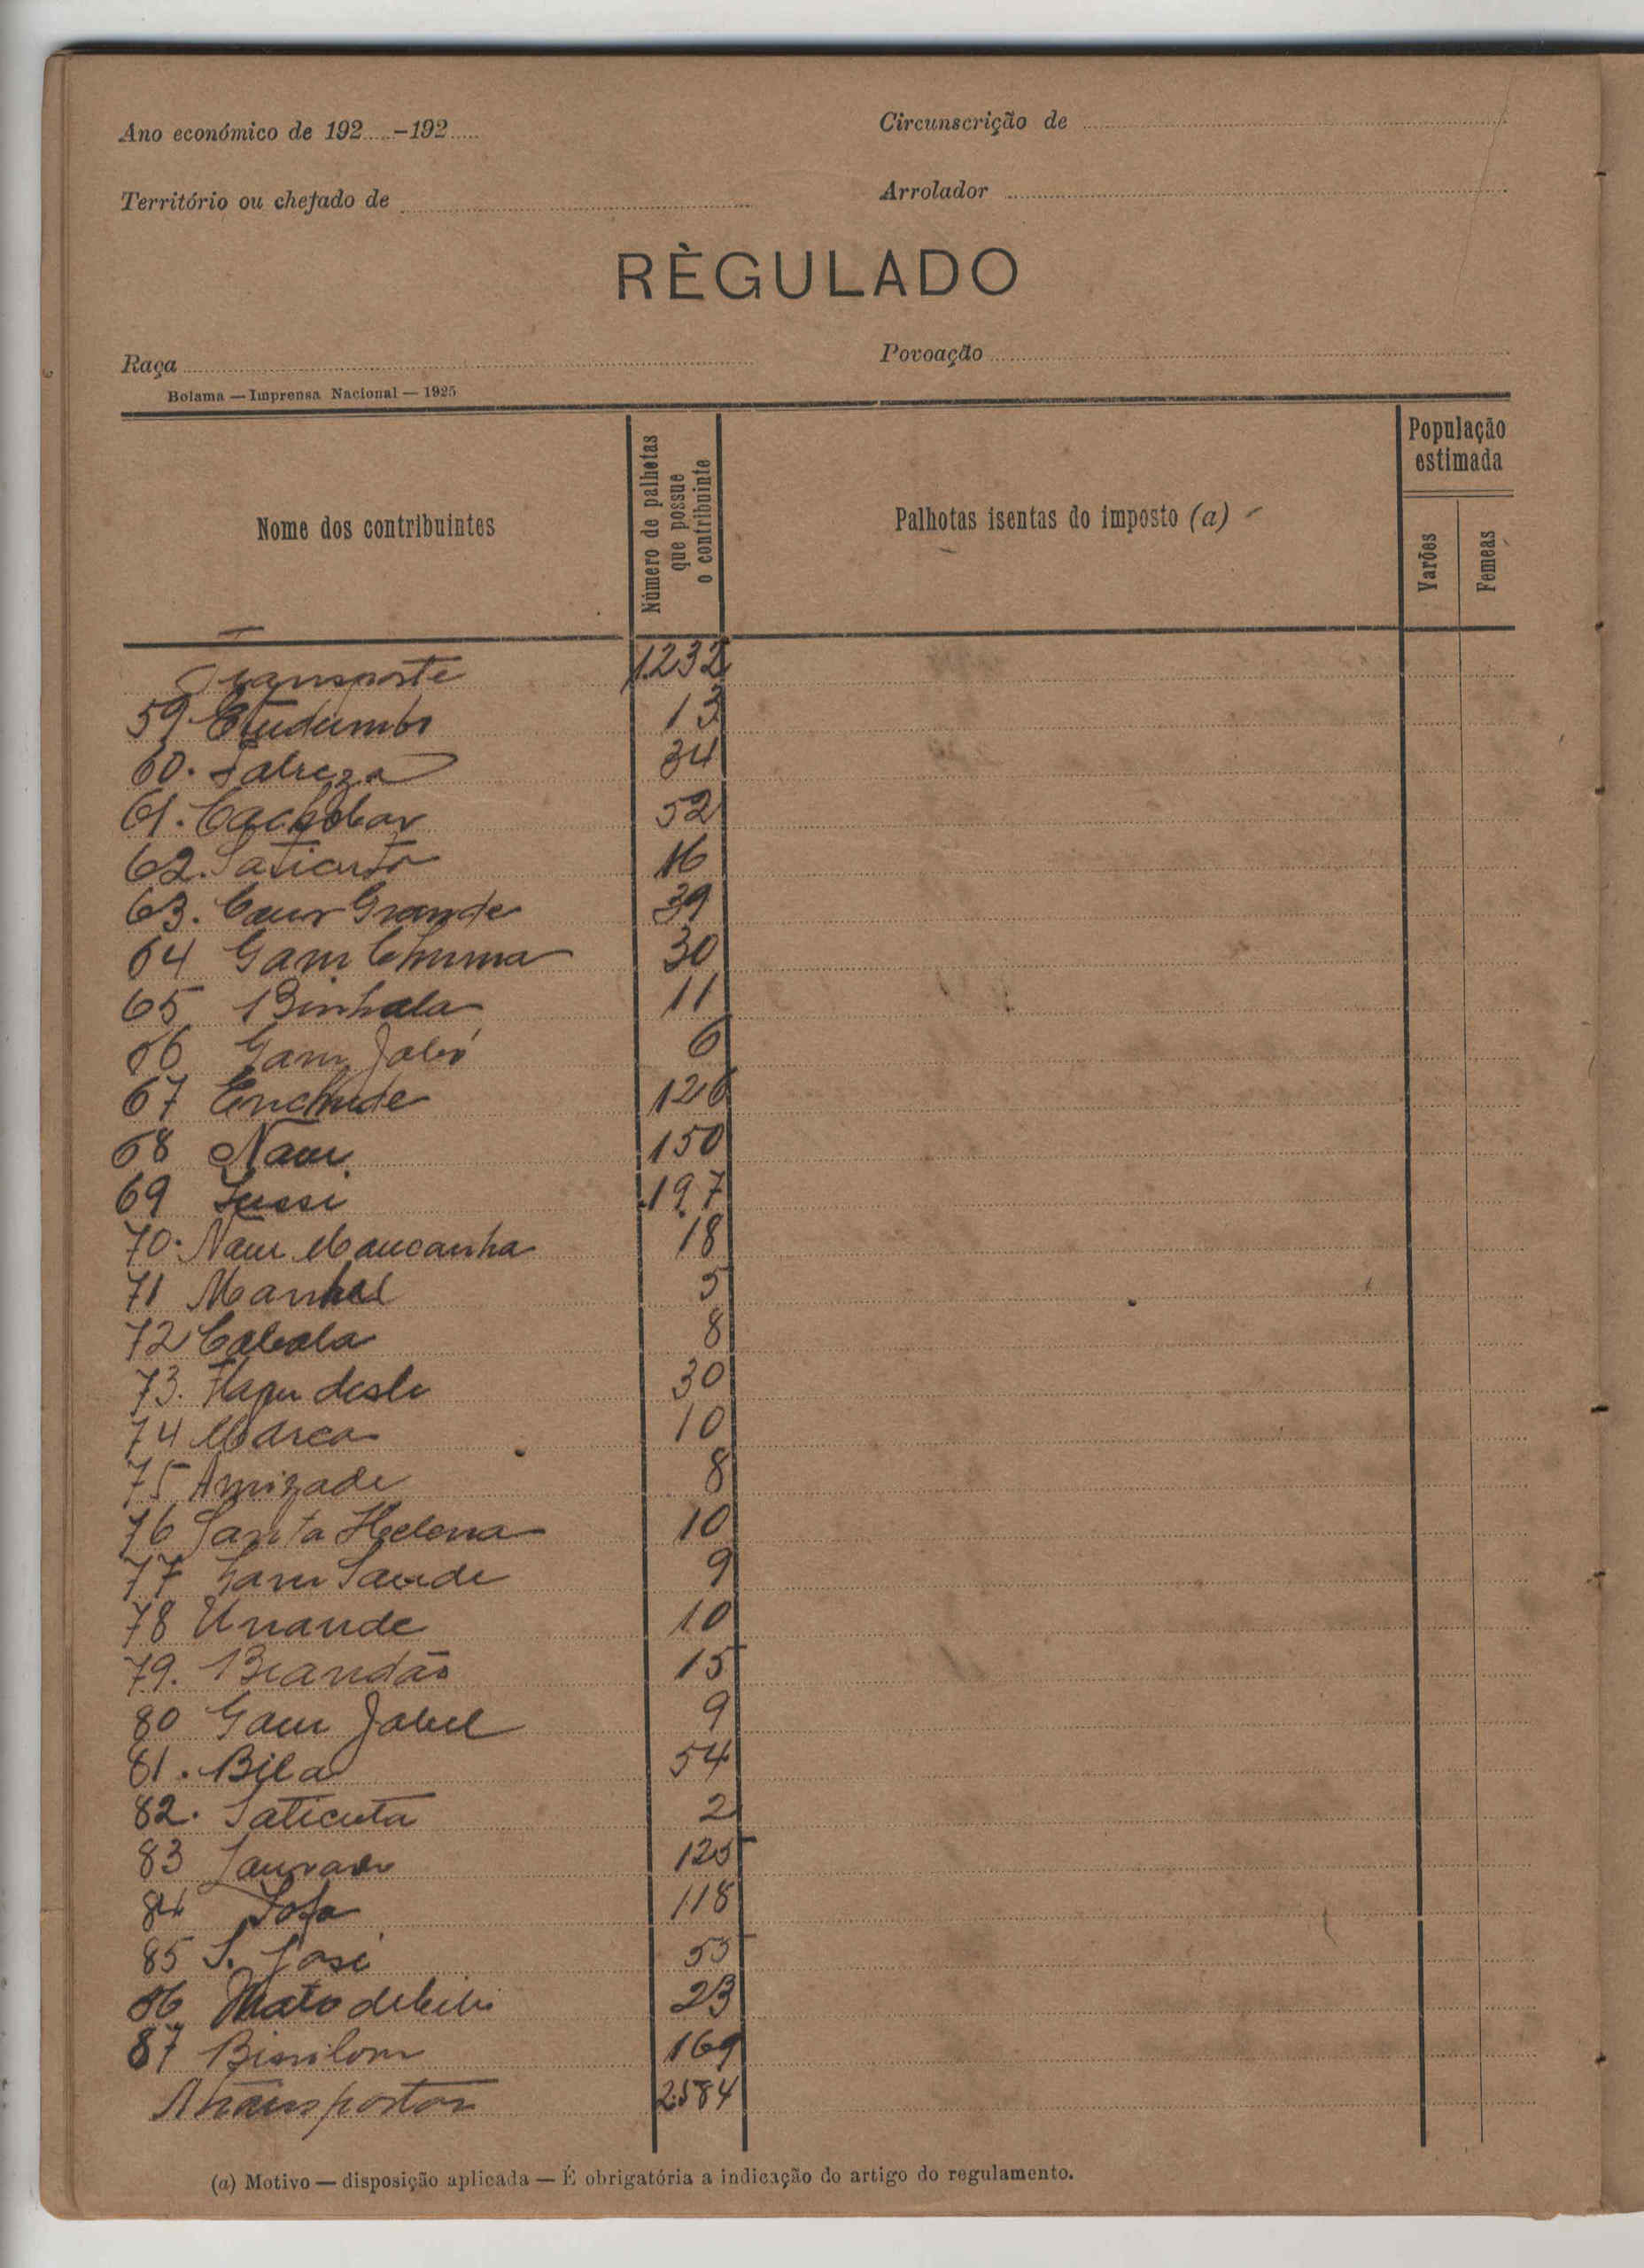 Ano económico de 192.....-192.....
Circunscrição de
Território ou chefado de
Arrolador
RÈGULADO
Raça
Povoação
Bolama — Imprensa Nacional — 1925
Nome dos contribuintes
Número de palhotas que possue o contribuinte
Palhotas isentas do imposto (a)
População estimada
Varões
Femeas
Transporte 1232
59. 13
60. 34
61. 52
62. 16
63. Grande 39
64 Gam Chuma 30
65 Binhala 11
66 Gam 6
67 Enchude 126
68 Nam 150
69 Jussi 197
70. Nam Mancanha 18
71 5
72 Cabala 8
73. 30
74 10
75 Amizade 8
76 Santa Helena 10
77 Gam Saude 9
78 Unande 10
79. Brandão 15
80 Gam 9
81. Bila 54
82. Saticuta 2
83 125
84 118
85 S. José 55
86 Mato 23
87 Bissilom 169
A transportar 2.584
(a) Motivo — disposição aplicada — É obrigatória a indicação do artigo do regulamento.